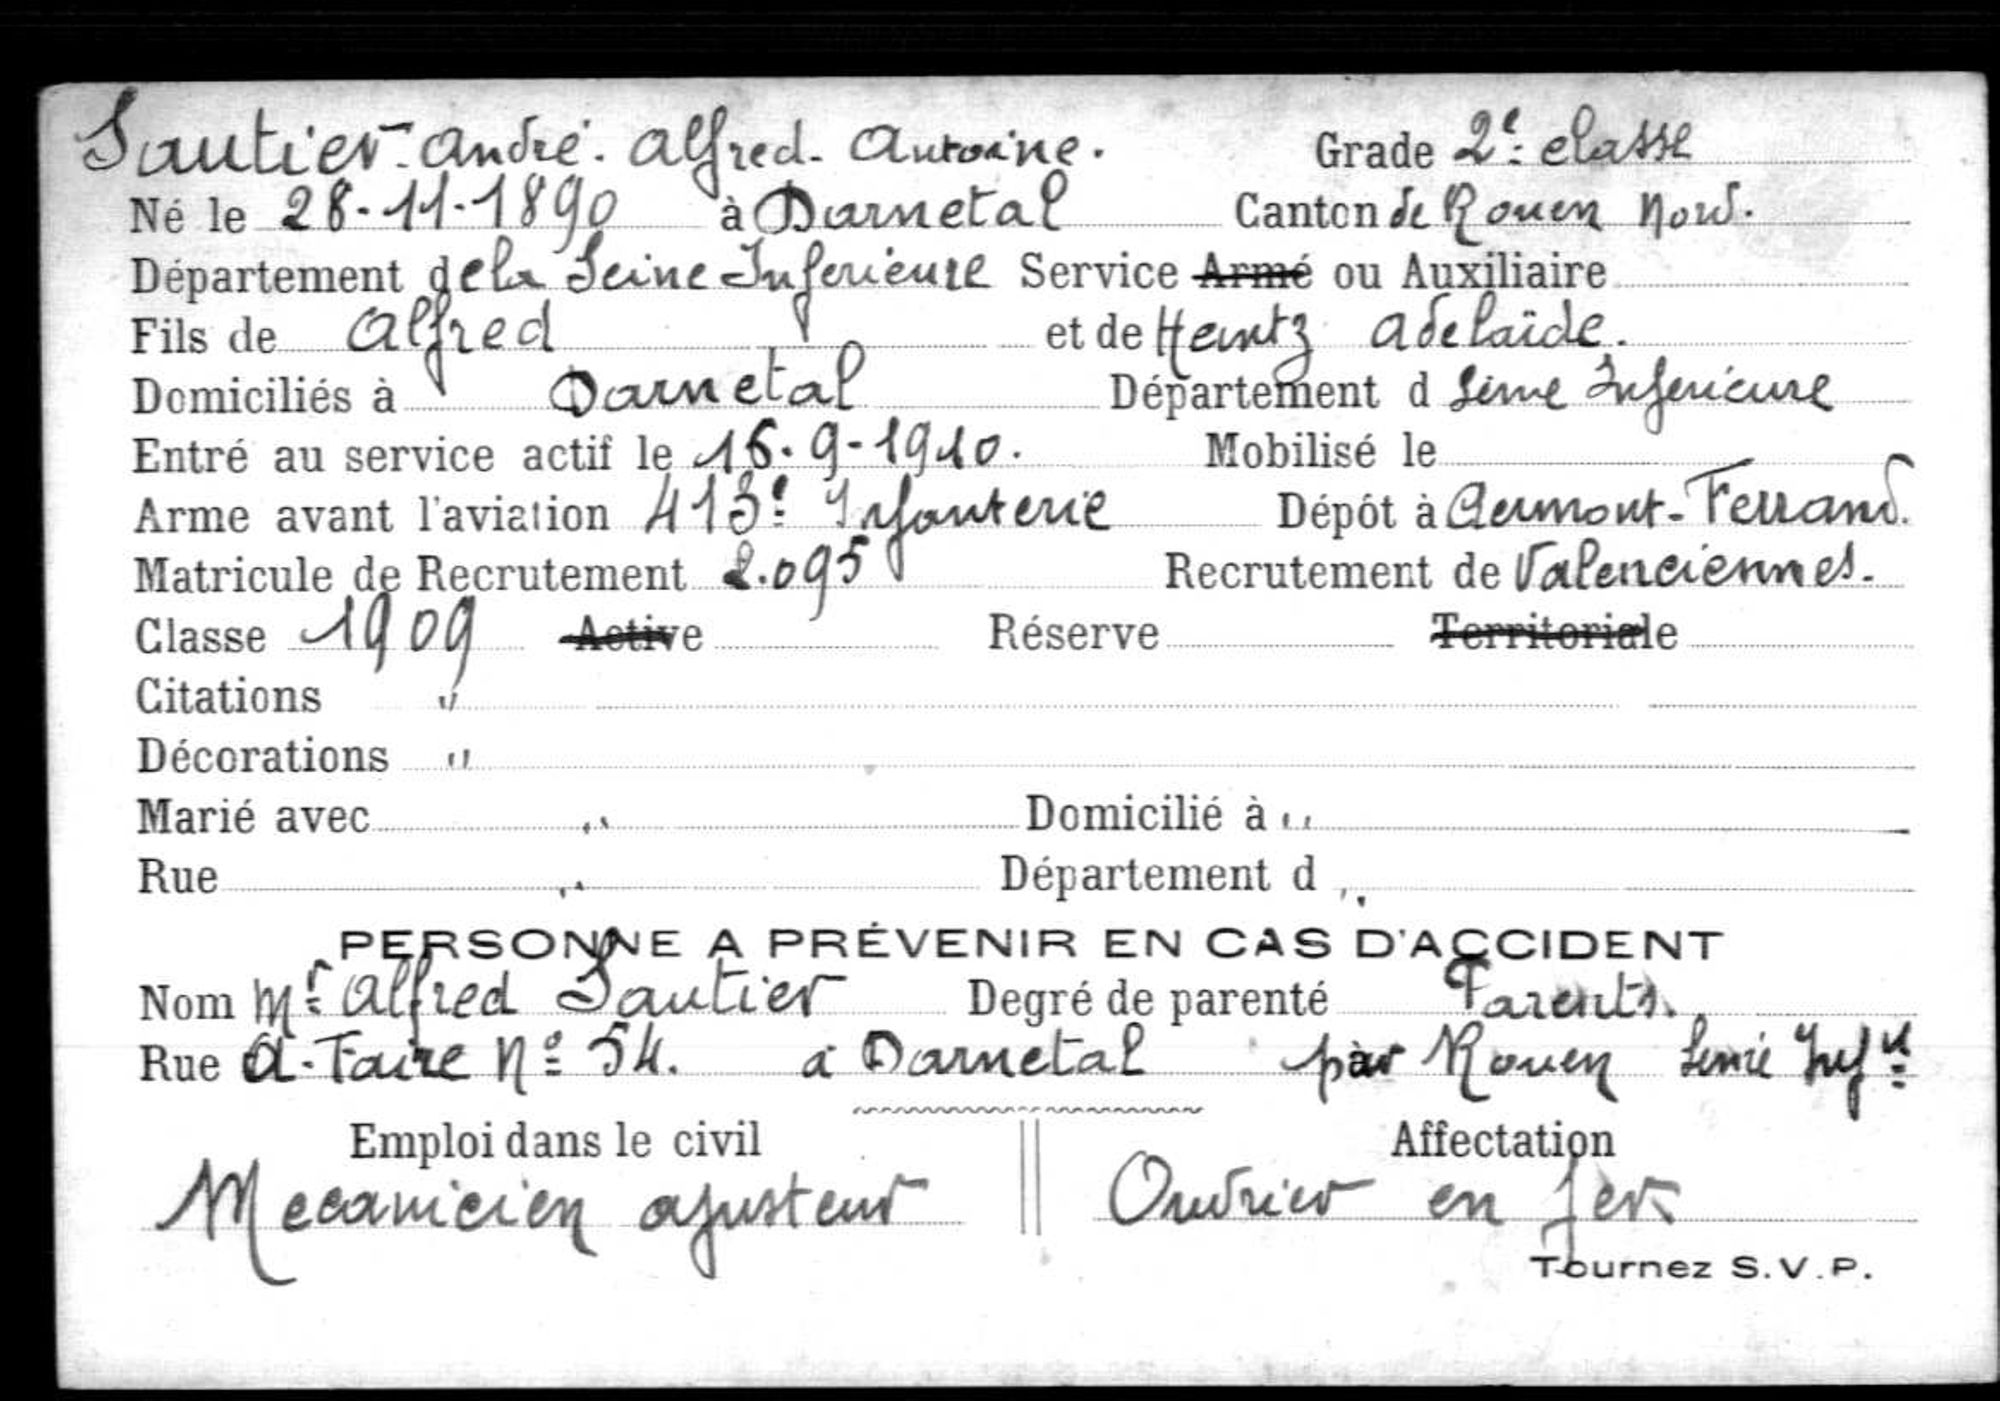 Sautier André. Alfred. Antoine. Grade 2e classe
Né le 28-11-1890 à Darnetal Canton de Rouen Nord.
Département de la Seine Inferieure Service Armé ou Auxiliaire
Fils de Alfred et de Heintz Adelaïde.
Domiciliés à Darnetal Département d Seine Inferieure
Entré au service actif le 16.9-1910. Mobilisé le
Arme avant l'aviation 413e Infanterie Dépôt à Clermont-Ferrand.
Matricule de Recrutement 2.095 Recrutement de Valenciennes.
Classe 1909 Active Réserve Territoriale
Citations "
Décorations "
Marié avec " Domicilié à "
Rue " Département d "
PERSONNE A PRÉVENIR EN CAS D'ACCIDENT
Nom Mr Alfred Sautier Degré de parenté Parents.
Rue A. Faire No 54. à Darnetal par Rouen Seine Infre
Emploi dans le civil Affectation
Mecanicien ajusteur Ouvrier en fer
Tournez S.V.P.